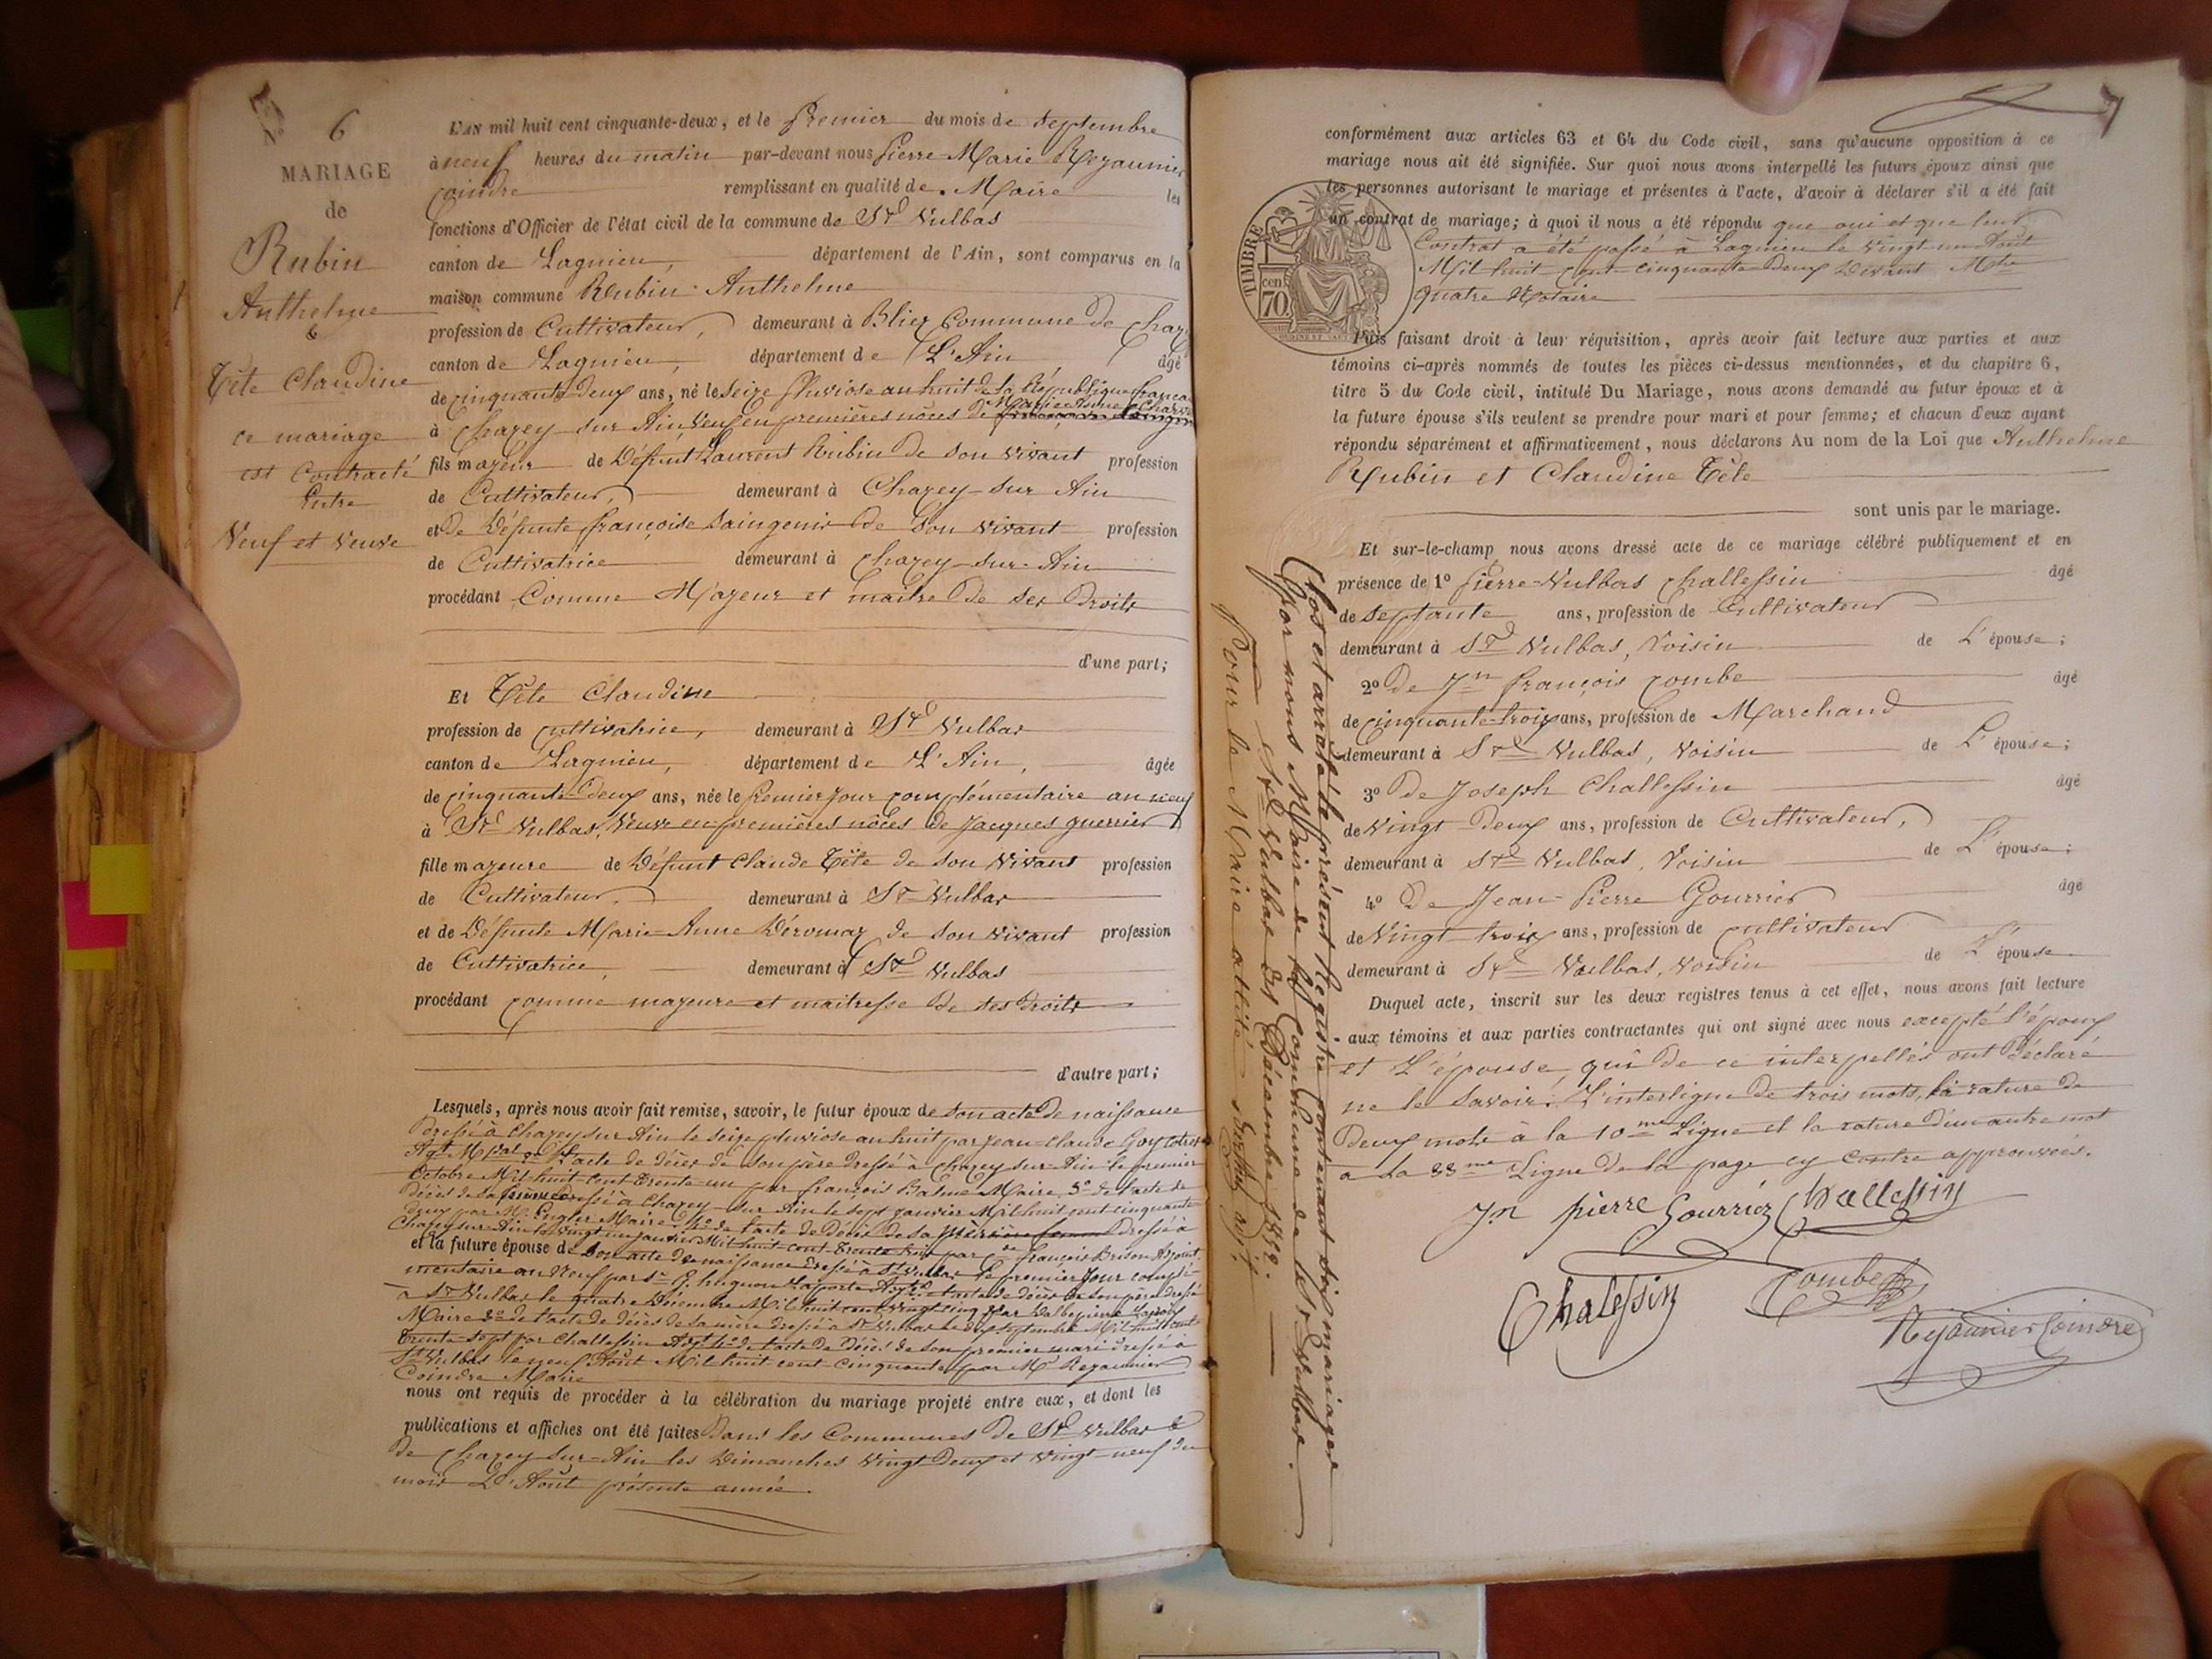 N° 6
MARIAGE
de
Rubin
Anthelme
&
Tête Claudine
ce mariage
est Contracté
Entre
Veuf et veuve
L'AN mil huit cent cinquante-deux, et le Premier du mois de septembre
à neuf heures du matin par-devant nous Pierre-Marie Reyaunier
Coindre remplissant en qualité de Maire les
fonctions d'Officier de l'état civil de la commune de St Vulbas
canton de Lagnieu, département de l'Ain, sont comparus en la
maison commune Rubin Anthelme
profession de Cultivateur, demeurant à Blier Commune de Chaz
canton de Lagnieu, département de L'Ain âgé
de cinquante deux ans, né le Seize Pluviose an huit de la République français
à Chazey-sur-Ain, veuf en premières nôces de Marie-Anne Charv
fils majeur de Défunt Laurent Rubin de son vivant profession
de Cultivateur, demeurant à Chazey-sur Ain
et de Défunte françoise Saingenis de son vivant profession
de Cultivatrice demeurant à Chazey-sur-Ain
procédant Comme Majeur et maitre de ses Droits
d'une part;
Et Tête Claudine
profession de cultivatrice, demeurant à St Vulbas
canton de Lagnieu, département de L'Ain, âgée
de cinquante-deux ans, née le Premier Jour complémentaire an neuf
à St Vulbas, Veuve en premières nôces de Jacques guerrier
fille majeure de Défunt Claude Tête de son Vivant profession
de Cultivateur, demeurant à St Vulbas
et de Défunte Marie-Anne Dérouaz de son vivant profession
de Cultivatrice, demeurant à St Vulbas
procédant comme majeure et maitresse de ses droits
d'autre part;
Lesquels, après nous avoir fait remise, savoir, le futur époux de son acte de naissance
dressé à Chazey sur Ain le seize pluviose an huit par Jean-Claude Goy
Agt Mpal 2° l'acte de décès de son père dressé à Chazey sur Ain le premier
Octobre Mil huit cent trente un par françois Balme Maire, 3° de l'acte de
décès de sa femme dressé à Chazey-sur Ain le sept janvier Mil huit cent cinquante
deux par Mr Maire. 4° de l'acte de Décès de sa dressé à
Chazey sur Ain le vingt un janvier Mil huit cent trente trois par françois Brison Adjoint
et la future épouse de son acte de naissance dressé à St Vulbas le premier Jour complé-
mentaire an Neuf par Laporte l'acte de décès de son père dressé
à St Vulbas le quatre Décembre Mil huit cent vingt cinq par
Maire 3° de l'acte de décès de sa mère dressé à St Vulbas le septembre Mil huit cent
trente-sept par Challessin Adjt 4° de l'acte de Décès de son premier mari dressé à
St Vulbas le neuf Août Mil huit cent cinquante par Mr Reyaunier
Coindre Maire
nous ont requis de procéder à la célébration du mariage projeté entre eux, et dont les
publications et affiches ont été faites dans les Communes de St Vulbas &
de Chazey-sur-Ain les Dimanches vingt Deux et vingt-neuf du
mois D'Août présente année.
7
conformément aux articles 63 et 64 du Code civil, sans qu'aucune opposition à ce
mariage nous ait été signifiée. Sur quoi nous avons interpellé les futurs époux ainsi que
les personnes autorisant le mariage et présentes à l'acte, d'avoir à déclarer s'il a été fait
un contrat de mariage; à quoi il nous a été répondu que oui et que leur
Contrat a été passé à Lagnieu le vingt un Août
Mil huit cent cinquante deux Devant Mtre
quatre Notaire
TIMBRE
cen.
70
Puis faisant droit à leur réquisition, après avoir fait lecture aux parties et aux
témoins ci-après nommés de toutes les pièces ci-dessus mentionnées, et du chapitre 6,
titre 5 du Code civil, intitulé Du Mariage, nous avons demandé au futur époux et à
la future épouse s'ils veulent se prendre pour mari et pour femme; et chacun d'eux ayant
répondu séparément et affirmativement, nous déclarons Au nom de la Loi que Anthelme
Rubin et Claudine Tête
sont unis par le mariage.
Et sur-le-champ nous avons dressé acte de ce mariage célébré publiquement et en
présence de 1° Pierre-Vulbas Challessin âgé
de septante ans, profession de Cultivateur
demeurant à St Vulbas, Voisin de L'épouse;
2° de Jn françois Combe âgé
de cinquante-trois ans, profession de Marchand
demeurant à St Vulbas, Voisin de L'épouse;
3° de Joseph Challessin âgé
de Vingt Deux ans, profession de Cultivateur,
demeurant à St Vulbas, Voisin de L'épouse;
4° De Jean-Pierre Gourrier âgé
de Vingt-trois ans, profession de cultivateur
demeurant à St Vulbas, voisin de L'épouse
Duquel acte, inscrit sur les deux registres tenus à cet effet, nous avons fait lecture
aux témoins et aux parties contractantes qui ont signé avec nous excepté l'époux
et L'épouse, qui de ce interpellés ont déclaré
ne le Savoir. L'interligne de trois mots, la rature de
Deux mots à la 10me Ligne et la rature d'un autre mot
à la 33me Ligne de la page cy contre approuvées.
Jn pierre Gourrier Challessin
Chalessin Combe
Reyaunier Coindre
Clos et arrêté le présent Registre contenant six mariages
par nous Maire de la Commune de St Vulbas.
St Vulbas 31 Décembre 1852.
Pour le Maire